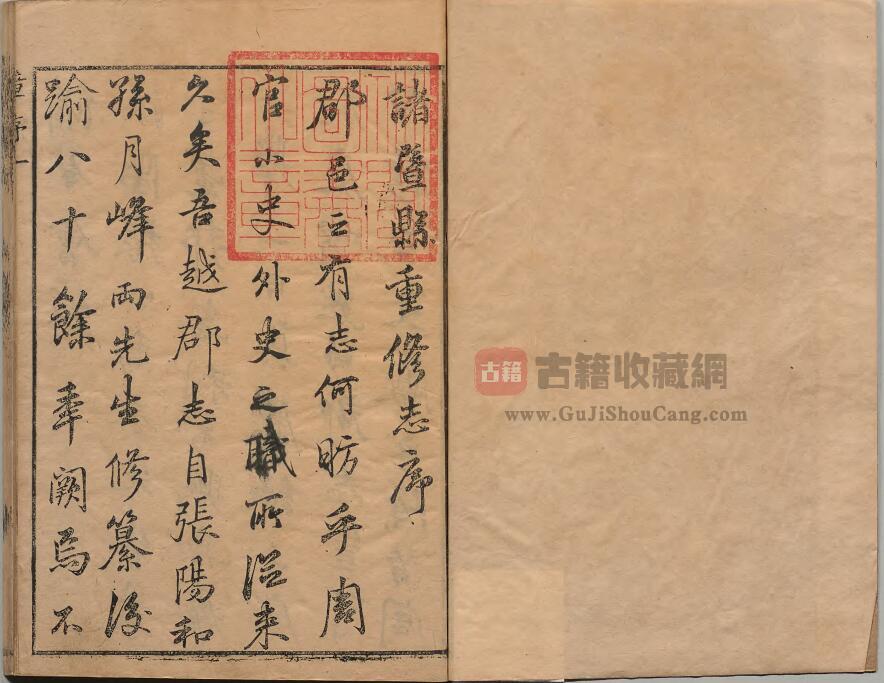 諸暨縣重修志序
郡邑之有志何昉乎周
官小史外史之職所從来
久矣吾越郡志自張陽和
孫月峰兩先生修纂後
踰八十餘年闕焉不
章序一
古籍
古籍收藏網
www.GuJiShouCang.com